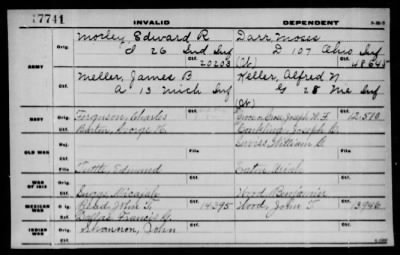 17741 INVALID DEPENDENT
Orig. Morley, Edward R Darr, Moses
I 26 Ind Inf D 107 Ohio Inf
ARMY Ctf. 20203 Ctf. 48645
Meller, James B Keller, Alfred N
A 13 Mich Inf G 28 Me Inf
NAVY Orig. Ferguson, Charles Ctf. Joseph W. F. Ctf.
Barton, George Conkling, Joseph
OLD WAR Orig. William
File File
Tuttle, Edmund Eaton
WAR OF 1812 Orig.
Ctf. Boggs, Micajah Wood, Benjamin
MEXICAN WAR Orig. Read, John T. Ctf. 14395 Wood, John T. Ctf. 13946
Ctf. Francis
INDIAN WAR Orig. Shannon, John Ctf. Ctf.
Ctf.